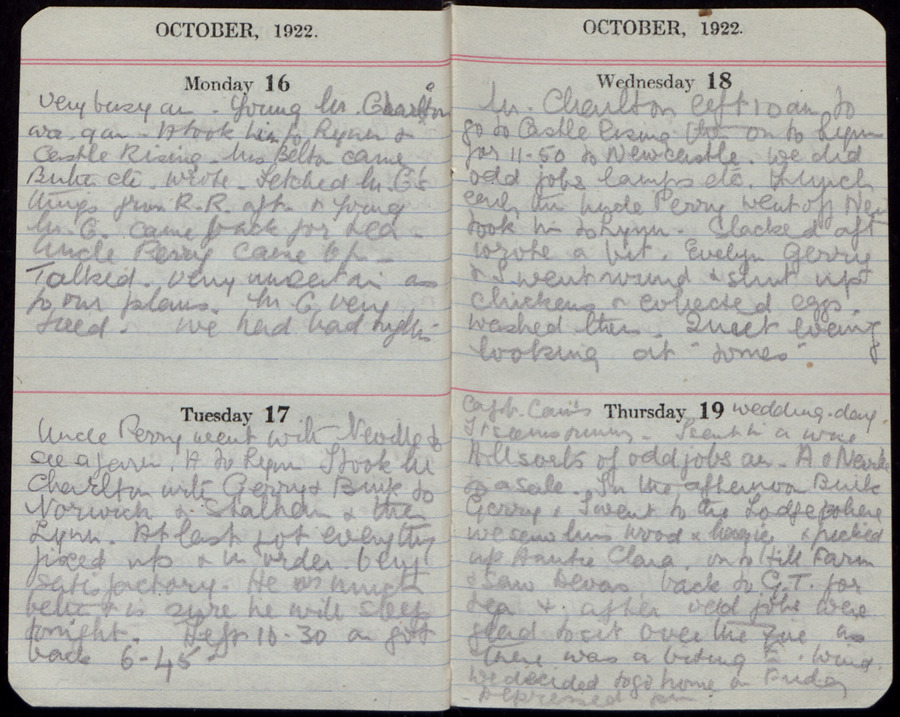 OCTOBER, 1922.
Monday 16
Very busy am. Young Mr. Charlton
was g am. A took him to Lynn &
Castle Rising. Mrs Belton came
etc. wrote. Fetched Mr. C's
things from R.R. aft. & young
Mr. C. came back for tea.
Uncle Perry came 
Talked. Very uncertain as
to our plans. Mr. C very
tired. We had had
Tuesday 17
Uncle Perry went with to
see a farm. A to Lynn I took Mr
Charlton with Gerry & to
Norwich & Stalham & then
Lynn. At last got everything
fixed up & in order. Very
satisfactory. He is much
better & is sure he will sleep
tonight. Left 10-30 am got
back 6-45
OCTOBER, 1922.
Wednesday 18
Mr. Charlton left 10 am to
go to Castle Rising. on to Lynn
for 11-50 to Newcastle. We did
odd jobs lamps etc. Lunch
early Uncle Perry went off
took him to Lynn. aft
wrote a bit. Evelyn Gerry
& I went round & shut up
chickens & collected eggs.
washed them. Quiet evening
looking at "
Thursday 19
Capt. wedding-day
I went in a 
All sorts of odd jobs am. A &
to a sale. In the afternoon
Gerry & I went to the Lodge where
we saw wood & & picked
up Auntie Clara, on to Hill Farm
& saw back to G.T. for
tea & after odd jobs were
glad to sit over the fire as
there was a biting E. wind.
We decided to go home on Friday
Depressed pm.